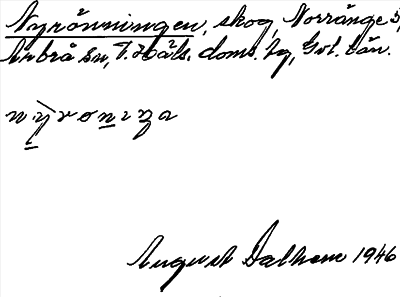 Nyrönningen, skog, Norränge 5,
Arbrå sn, V. Häls. doms. tg, Gvl. län.
August Dalhem 1946